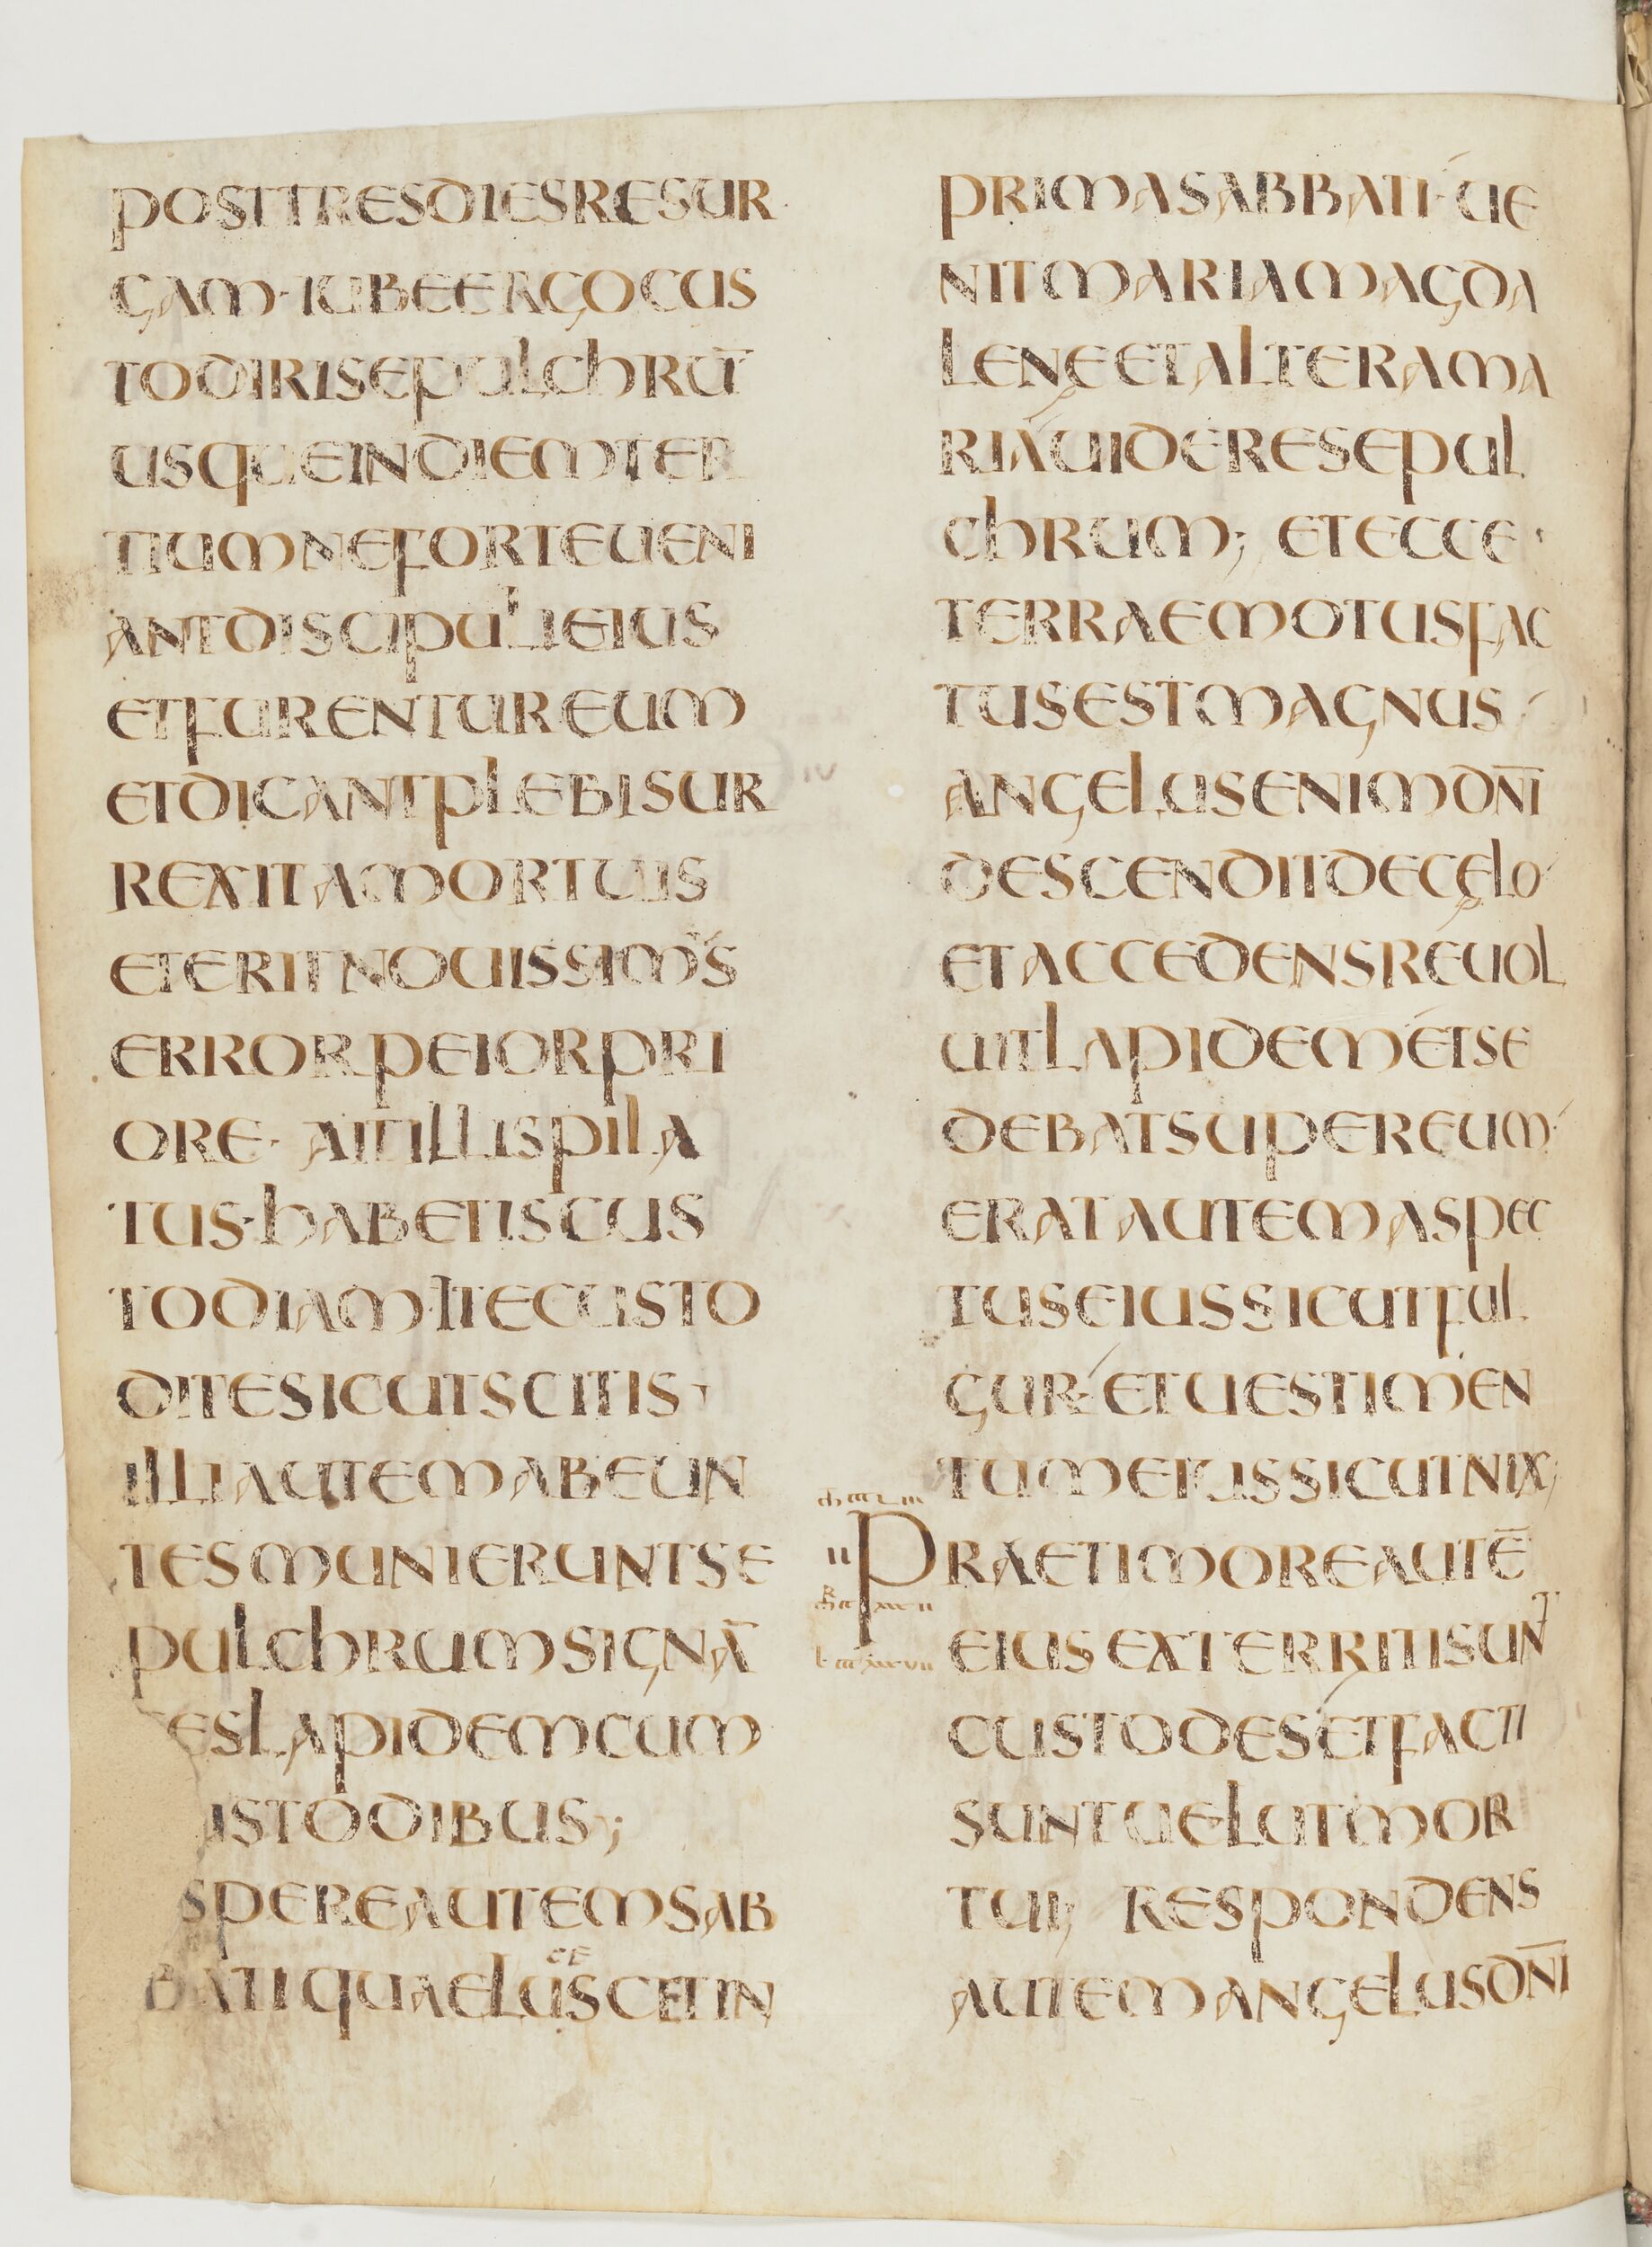 POSTTRESDIESRESUR
GAM·IUBEERGOCUS
TODIRISEPULCHRŪ
USQUEINDIEMTER
TIUMNEFORTEUENI
ANTDISCIPULIEIUS
ETFURENTUREUM
ETDICANTPLEBISUR
REXITAMORTUIS
ETERITNOUISSIMUS
ERRORPEIORPRI
ORE· AITILLISPILA
TUS·HABETISCUS
TODIAM·ITECUSTO
DITESICUTSCITIS
ILLIAUTEMABEUN
TESMUNIERUNTSE
PULCHRUMSIGNĀ
ESLAPIDEMCUM
USTODIBUS;
SPEREAUTEMSAB
BATIQUAELUSCETIN
PRIMASABBATI·UE
NITMARIAMAGDA
LENEETALTERAMA
RIAUIDERESEPUL
CHRUM; ETECCE
TERRAEMOTUSFAC
TUSESTMAGNUS
ANGELUSENIMDN̄I
DESCENDITDECELO
ETACCEDENSREUOL
UITLAPIDEMETSE
DEBATSUPEREUM
ERATAUTEMASPEC
TUSEIUSSICUTFUL
GUR·ETUESTIMEN
TUMEIUSSICUTNIX;
PRAETIMOREAUTĒ
EIUSEXTERRITISUNT
CUSTODESETFACTI
SUNTUELUTMOR
TUI; RESPONDENS
AUTEMANGELUSDN̄I